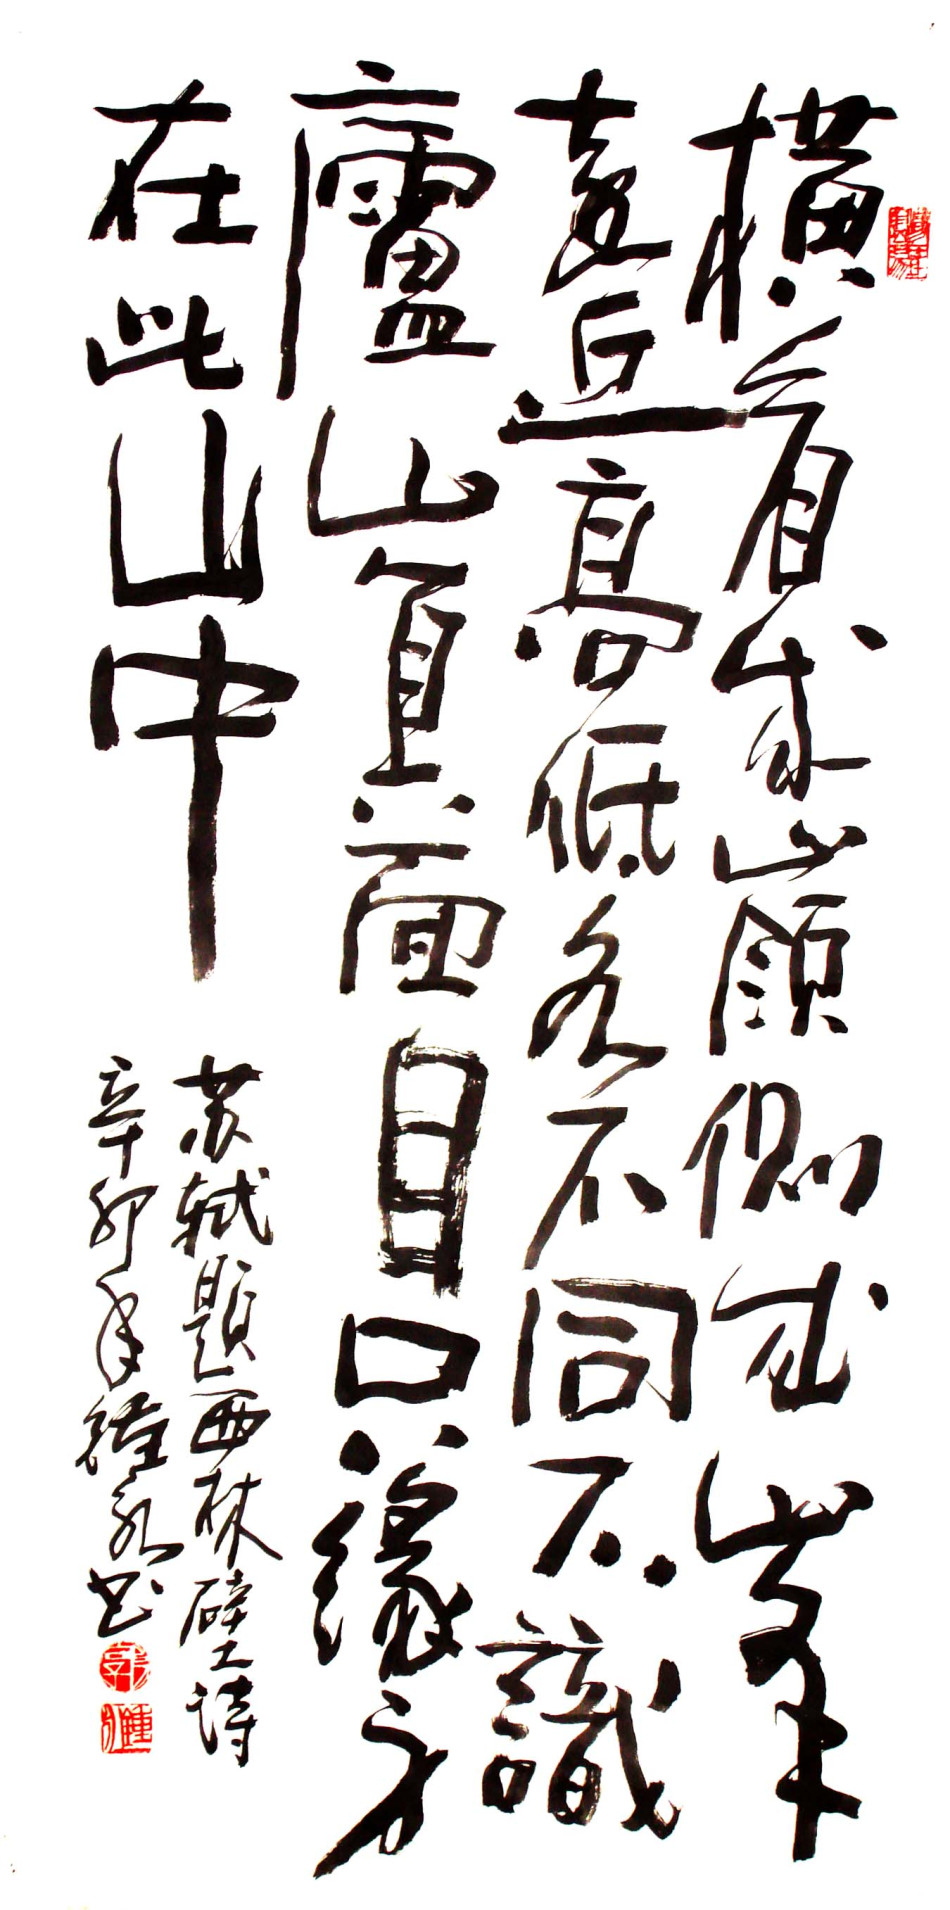 橫看成嶺側成峯
遠近高低各不同不識
廬山真面目只緣身
在此山中
苏轼題西林壁诗
辛卯年鍾永书